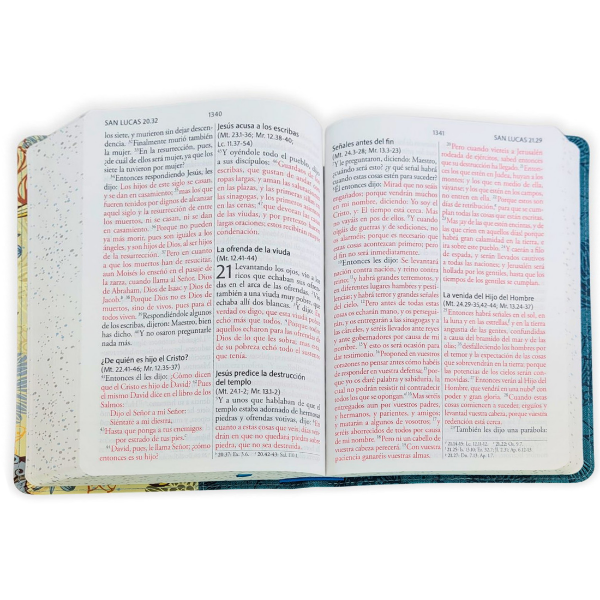 SAN LUCAS 20.32
1340
los siete, y murieron sin dejar descen-
dencia. Finalmente murió también
la mujer. En la resurrección, pues,
¿de cuál de ellos será mujer, ya que los
siete la tuvieron por mujer?
Entonces respondiendo Jesús, les
dijo: Los hijos de este siglo se casan,
y se dan en casamiento; mas los que
fueren tenidos por dignos de alcanzar
aquel siglo y la resurrección de entre
los muertos, ni se casan, ni se dan
en casamiento. Porque no pueden
ya más morir, pues son iguales a los
ángeles, y son hijos de Dios, al ser hijos
de la resurrección. Pero en cuanto
a que los muertos han de resucitar,
aun Moisés lo enseñó en el pasaje de
la zarza, cuando llama al Señor, Dios
de Abraham, Dios de Isaac y Dios de
Jacob. Porque Dios no es Dios de
muertos, sino de vivos, pues para él
todos viven. Respondiéndole algunos
de los escribas, dijeron: Maestro, bien
has dicho. Y no osaron preguntarle
nada más.
¿De quién es hijo el Cristo?
(Mt. 22.41-46; Mr. 12.35-37)
Entonces él les dijo: ¿Cómo dicen
que el Cristo es hijo de David? Pues
el mismo David dice en el libro de los
Salmos:
Dijo el Señor a mi Señor:
Siéntate a mi diestra,
Hasta que ponga a tus enemigos
por estrado de tus pies.
David, pues, le llama Señor; ¿cómo
entonces es su hijo?
Jesús acusa a los escribas
(Mt. 23.1-36; Mr. 12.38-40;
Lc. 11.37-54)
Y oyéndole todo el pueblo, dijo
a sus discípulos: Guardaos de los
escribas, que gustan de andar con
ropas largas, y aman las salutaciones
en las plazas, y las primeras sillas
en las sinagogas, y los primeros asientos
en las cenas; que devoran las casas
de las viudas, y por pretexto hacen
largas oraciones; éstos recibirán mayor
condenación.
La ofrenda de la viuda
(Mr. 12.41-44)
21 Levantando los ojos, vio a los
ricos que echaban sus ofrendas
en el arca de las ofrendas. Vio
también a una viuda muy pobre, que
echaba allí dos blancas. Y dijo: En
verdad os digo, que esta viuda pobre
echó más que todos. Porque todos
aquéllos echaron para las ofrendas de
Dios de lo que les sobra; mas ésta, de
su pobreza echó todo el sustento que
tenía.
Jesús predice la destrucción
del templo
(Mt. 24.1-2; Mr. 13.1-2)
Y a unos que hablaban de que el
templo estaba adornado de hermosas
piedras y ofrendas votivas, dijo: En
cuanto a estas cosas que veis, días ven-
drán en que no quedará piedra sobre
piedra, que no sea destruida.
1341
SAN LUCAS 21.29
Señales antes del fin
(Mt. 24.3-28; Mr. 13.3-23)
Y le preguntaron, diciendo: Maestro,
¿cuándo será esto? ¿y qué señal habrá
cuando estas cosas estén para suceder?
Él entonces dijo: Mirad que no seáis
engañados; porque vendrán muchos
en mi nombre, diciendo: Yo soy el
Cristo, y: El tiempo está cerca. Mas
no vayáis en pos de ellos. Y cuando
oigáis de guerras y de sediciones, no
os alarméis; porque es necesario que
estas cosas acontezcan primero; pero
el fin no será inmediatamente.
Entonces les dijo: Se levantará
nación contra nación, y reino contra
reino; y habrá grandes terremotos, y
en diferentes lugares hambres y pesti-
lencias; y habrá terror y grandes señales
del cielo. Pero antes de todas estas
cosas os echarán mano, y os persegui-
rán, y os entregarán a las sinagogas y a
las cárceles, y seréis llevados ante reyes
y ante gobernadores por causa de mi
nombre. Y esto os será ocasión para
dar testimonio. Proponed en vuestros
corazones no pensar antes cómo habéis
de responder en vuestra defensa; por-
que yo os daré palabra y sabiduría, la
cual no podrán resistir ni contradecir
todos los que se opongan. Mas seréis
entregados aun por vuestros padres,
y hermanos, y parientes, y amigos;
y matarán a algunos de vosotros; y
seréis aborrecidos de todos por causa
de mi nombre. Pero ni un cabello de
vuestra cabeza perecerá. Con vuestra
paciencia ganaréis vuestras almas.
Pero cuando viereis a Jerusalén
rodeada de ejércitos, sabed entonces
que su destrucción ha llegado. Enton-
ces los que estén en Judea, huyan a los
montes; y los que en medio de ella,
váyanse; y los que estén en los campos,
no entren en ella. Porque estos son
días de retribución, para que se cum-
plan todas las cosas que están escritas.
Mas ¡ay de las que estén encintas, y de
las que críen en aquellos días! porque
habrá gran calamidad en la tierra, e
ira sobre este pueblo. Y caerán a filo
de espada, y serán llevados cautivos
a todas las naciones; y Jerusalén será
hollada por los gentiles, hasta que los
tiempos de los gentiles se cumplan.
La venida del Hijo del Hombre
(Mt. 24.29-35,42-44; Mr. 13.24-37)
Entonces habrá señales en el sol, en
la luna y en las estrellas, y en la tierra
angustia de las gentes, confundidas
a causa del bramido del mar y de las
olas; desfalleciendo los hombres por
el temor y la expectación de las cosas
que sobrevendrán en la tierra; porque
las potencias de los cielos serán con-
movidas. Entonces verán al Hijo del
Hombre, que vendrá en una nube con
poder y gran gloria. Cuando estas
cosas comiencen a suceder, erguíos y
levantad vuestra cabeza, porque vuestra
redención está cerca.
También les dijo una parábola: